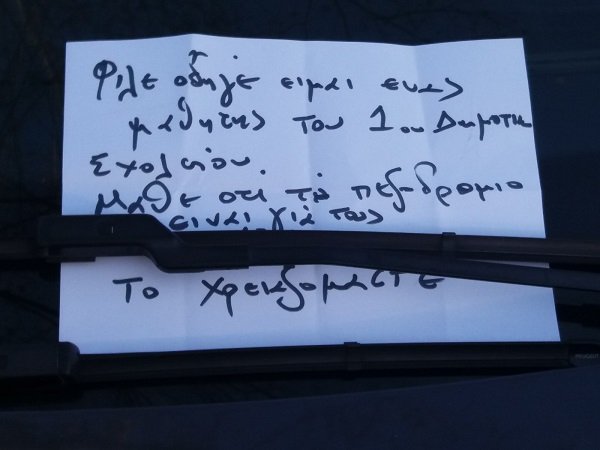 Φιλε οδηγέ ειμαι ενας
μαθητης του 1ου Δημοτικ
Σχολείου.
Μαθε οτι το πεζοδρομιο
ειναι για τους
Το χρειαζομαστε
PEUGEOT